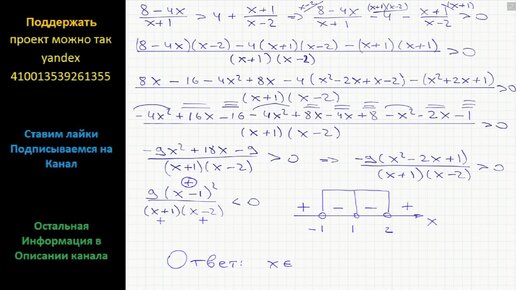 Поддержать
проект можно так
yandex
410013539261355
Ставим лайки
Подписываемся на
Канал
Остальная
Информация в
Описании канала
(8-4x)/(x+1) > 4 + (x+1)/(x-2) => (8-4x)/(x+1) - 4 - (x+1)/(x-2) > 0
((8-4x)(x-2) - 4(x+1)(x-2) - (x+1)(x+1))/((x+1)(x-2)) > 0
(8x - 16 - 4x² + 8x - 4(x² - 2x + x - 2) - (x² + 2x + 1))/((x+1)(x-2)) > 0
(-4x² + 16x - 16 - 4x² + 8x - 4x + 8 - x² - 2x - 1)/((x+1)(x-2)) > 0
(-9x² + 18x - 9)/((x+1)(x-2)) > 0 => (-9(x² - 2x + 1))/((x+1)(x-2)) > 0
(9(x-1)²)/((x+1)(x-2)) < 0
+ - - +
-1 1 2 x
Ответ: x ∈